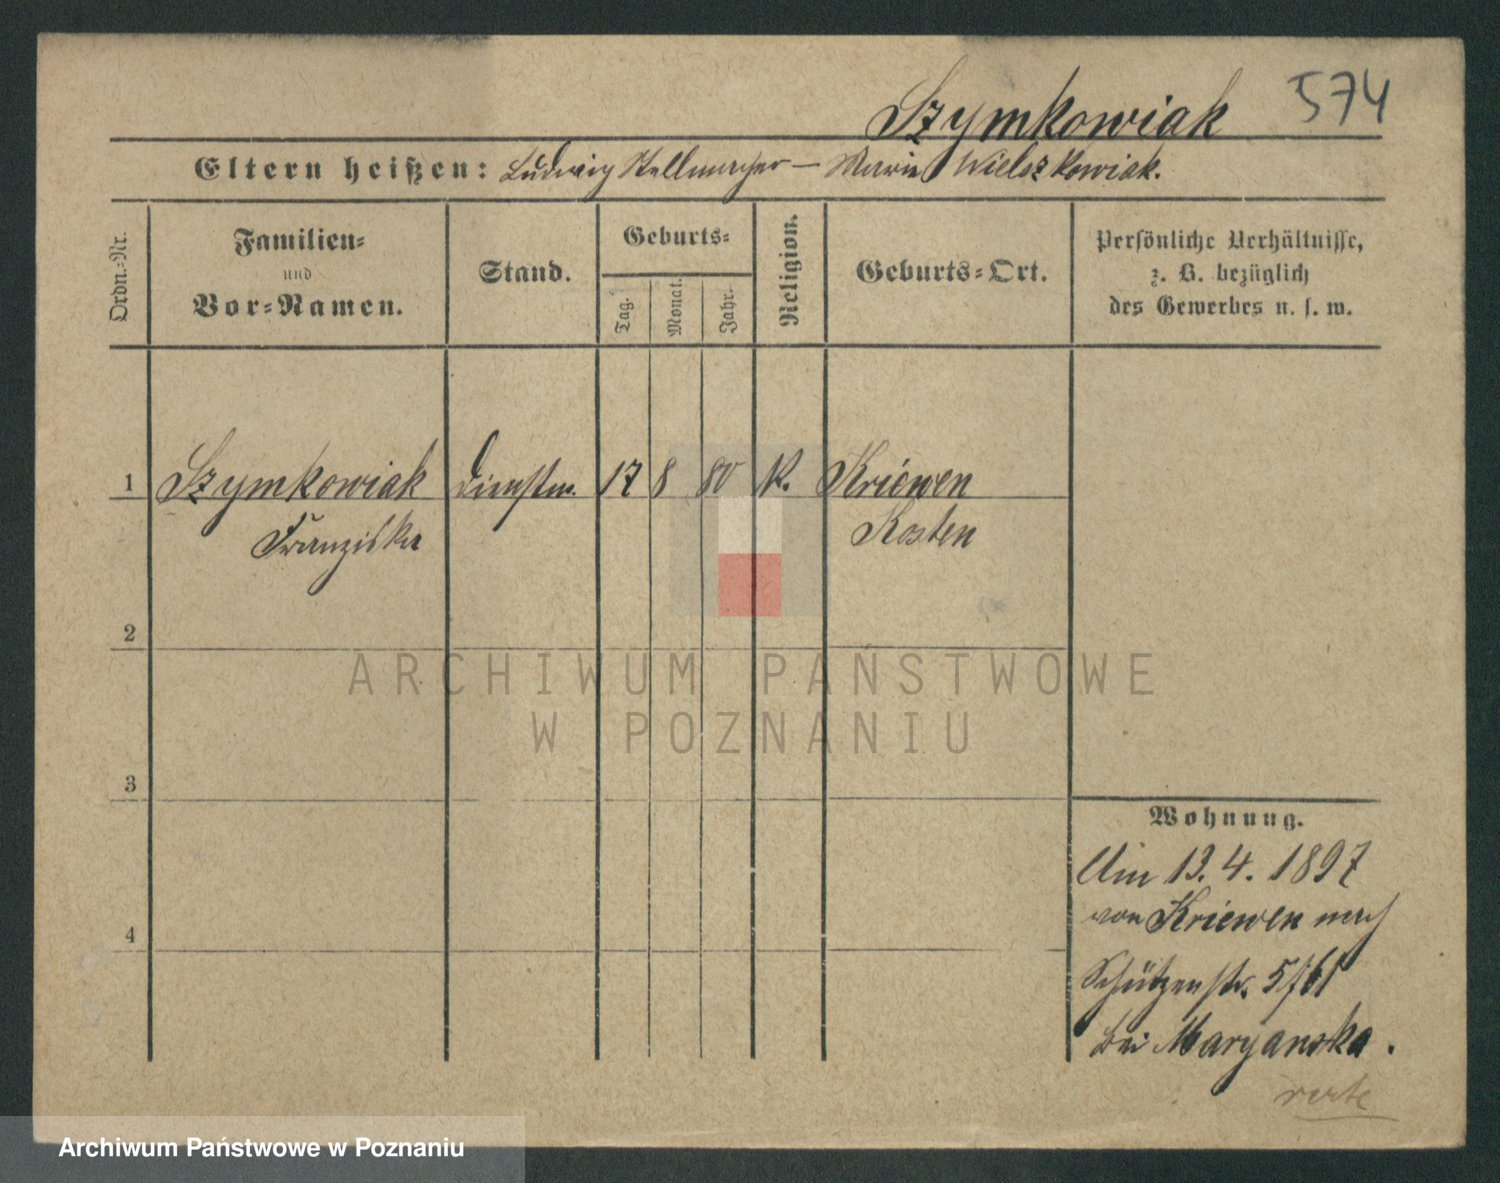 Szymkowiak 574
Eltern heißen: Ludwig Stellmacher — Marie Wielszkowiak.
Ordn.=Nr.
Familien=
und
Vor=Namen.
Stand.
Geburts=
Tag.
Monat.
Jahr.
Religion.
Geburts=Ort.
Persönliche Verhältnisse,
z. B. bezüglich
des Gewerbes u. s. w.
1 Szymkowiak Dienstm. 17 8 80 K. Kriewen
Franziska Kosten
2
ARCHIWUM PAŃSTWOWE
W POZNANIU
3
Wohnung.
Am 13. 4. 1897
von Kriewen nach
Schützenstr. 5/6I
bei Maryanska.
4
verte
Archiwum Państwowe w Poznaniu